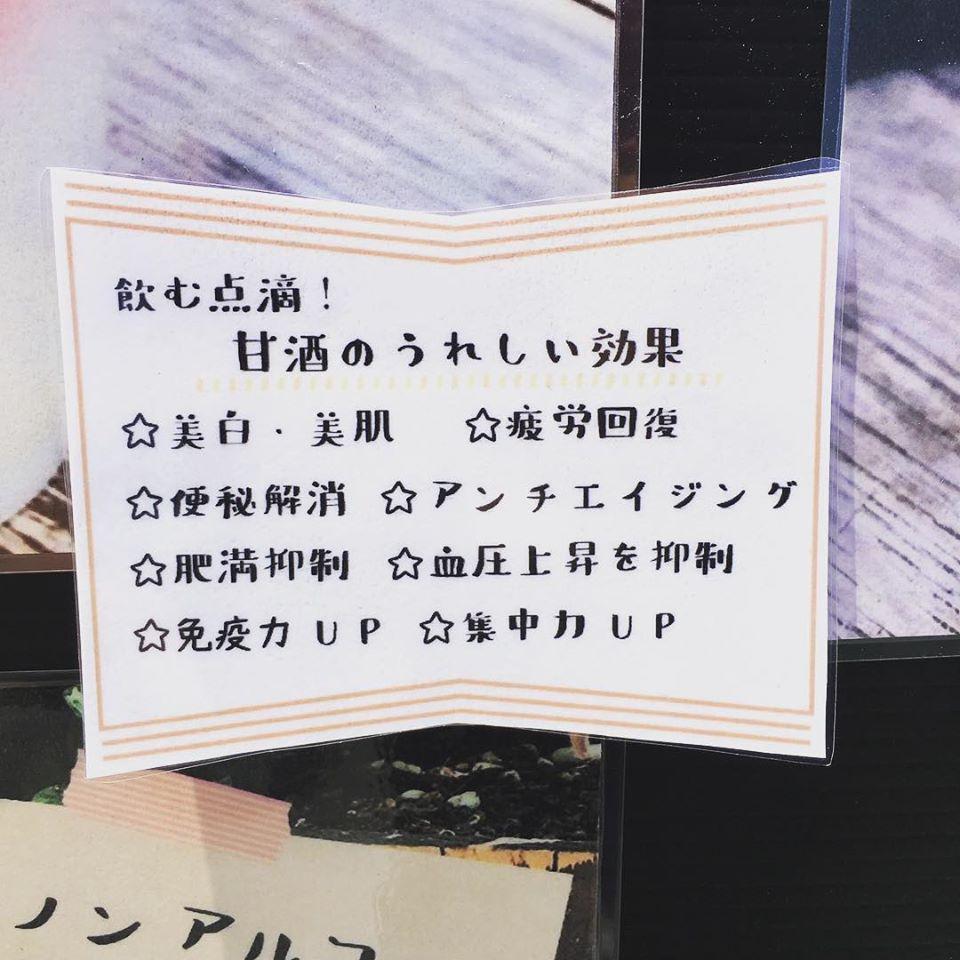 飲む点滴！
甘酒のうれしい効果
☆美白・美肌 ☆疲労回復
☆便秘解消 ☆アンチエイジング
☆肥満抑制 ☆血圧上昇を抑制
☆免疫力UP ☆集中力UP
ノンアル